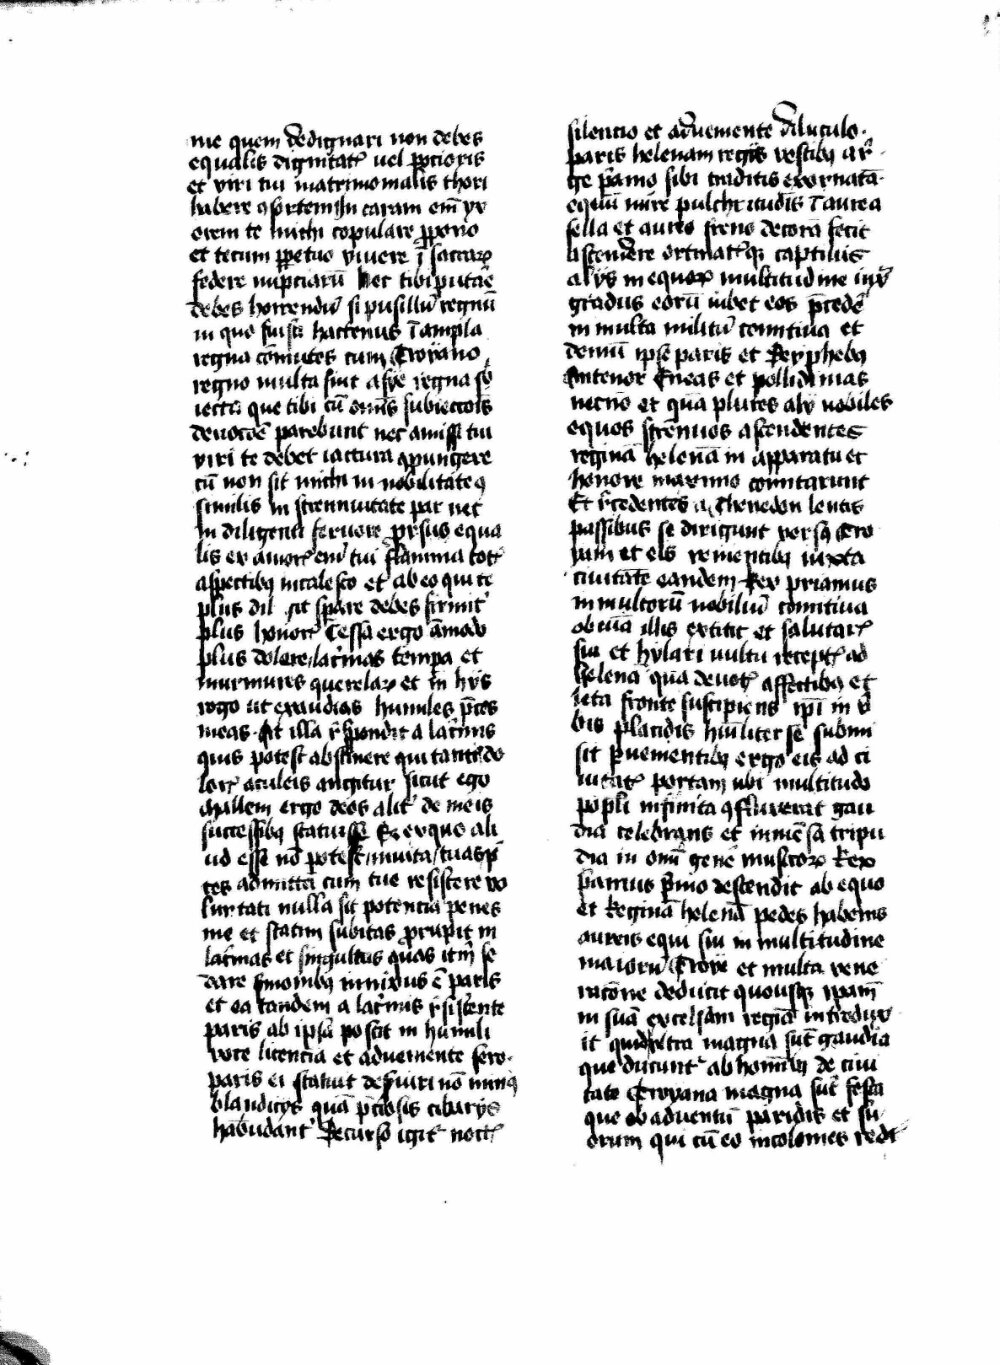 me quem dedignari non debes
equalis dignitatꝭ uel pocioris
et viri tui matrimonialis thori
habere ꝯsortem in caram em̄ vx
orem te michi copulare ꝓpono
et tecum ꝑpetuo vivere ī sacraꝝ
federe nupciarū Nec tibi putāe
debes horrendū si pusillū regnū
in quo fuisti hactenus Tampla
regna cōmutes cum Troyano
regno multa sint asye regna sb̄
iectū que tibi cū om̄s subiectōis
deuocōe parebunt nec amissi tui
viri te debet iactura ꝯpungere
cū non sit michi in nobilitate ꝯ
similis in strennuitate par nec
in diligenti feruore ꝓrsus equa
lis ex amorꝭ em̄ tui flamma totꝭ
aspectibꝫ incalesco et ab eo qui te
plus dil sit sperare debes firmitˀ
plus honorꝭ Cessa ergo āmodo
plus dolere lacˀmas tempa et
murmures querelaꝝ et in hijs
rogo ut exaudias humiles p̄ces
meas At illa rˀspondit a lacˀmis
quis potest abstinere qui tantˀ do
lorꝭ aculeis angitur sicut ego
Mallem ergo deos alitˀ de meis
successibꝫ statuisse Sꝫ ex quo ali
ud esse nō potest inuita tuas p̄
ces admittā cum tue resistere vo
luntati nulla sit potencia penes
me et statim subitas ꝓrupit in
lacˀmas et singultus quos itm̄ se
dare sˀmonibꝫ innixus ē paris
et ea tandem a lacˀmis rˀsistente
paris ab ipsa poscit in humili
voce licencia et adueniente sero
paris ei statuit deseruiri nō minꝯ
blandicijs quā p̄ciosis cibarijs
habūdantˀ Decurso igitˀ noctꝭ
silencio et adueniente diluculo
paris helenam regijs vestibꝫ a rˀ
ge pˀamo sibi traditis exornatā
equū mire pulchritudīs T aurea
sella et aureo freno decorā fecit
ascendere ortinatꝭqꝫ captiuis
alijs in equoꝝ multitudine iuxˀ
gradus eorū iubet eos p̄cedeˀ
in multa militū comitiua et
demū ipse paris et Deyphebꝫ
Antenor Eneas et pollidamas
necnō et quā plures alij nobiles
equos strennuos ascendentes
reginā helenā in apparatu et
honore maximo comitarunt
Et rˀcedentes a Thenedon lentis
passibus se dirigunt versꝯ Tro
jam et eis venientibꝫ iuxta
ciuitate eandem Rex priamus
in multorū nobiliū comitiua
obuiā illis extitit et salutarꝭ
sui et hylari uultu receptꝭ ad
helenā quā deuotꝭ affectibꝫ et
leta fronte suscipiens ip̄i in vˀ
bis placidis hūiliter se submi
sit ꝑuenientibꝫ ergo eis ad ci
uitatꝭ portam ubi multitudo
pop̄li infinita ꝯfluxerat gau
dia celebrans et inmēsa tripu
dia in om̄i gene musicoꝝ Rex
pˀamus pˀmo descendit ab equo
et Reginā helenā pedes habenis
aureis equi sui in multitudine
maiorū Troye et multa vene
racōne deducit quousqꝫ ip̄am
in suā excelsam regiā introdux
it quid ultra magna sūt gaudia
que ducuntˀ ab hom̄ibꝫ de ciui
tate Troyana magna sūt festa
que ob aduentū paridis et su
orum qui cū eo incolomes redi